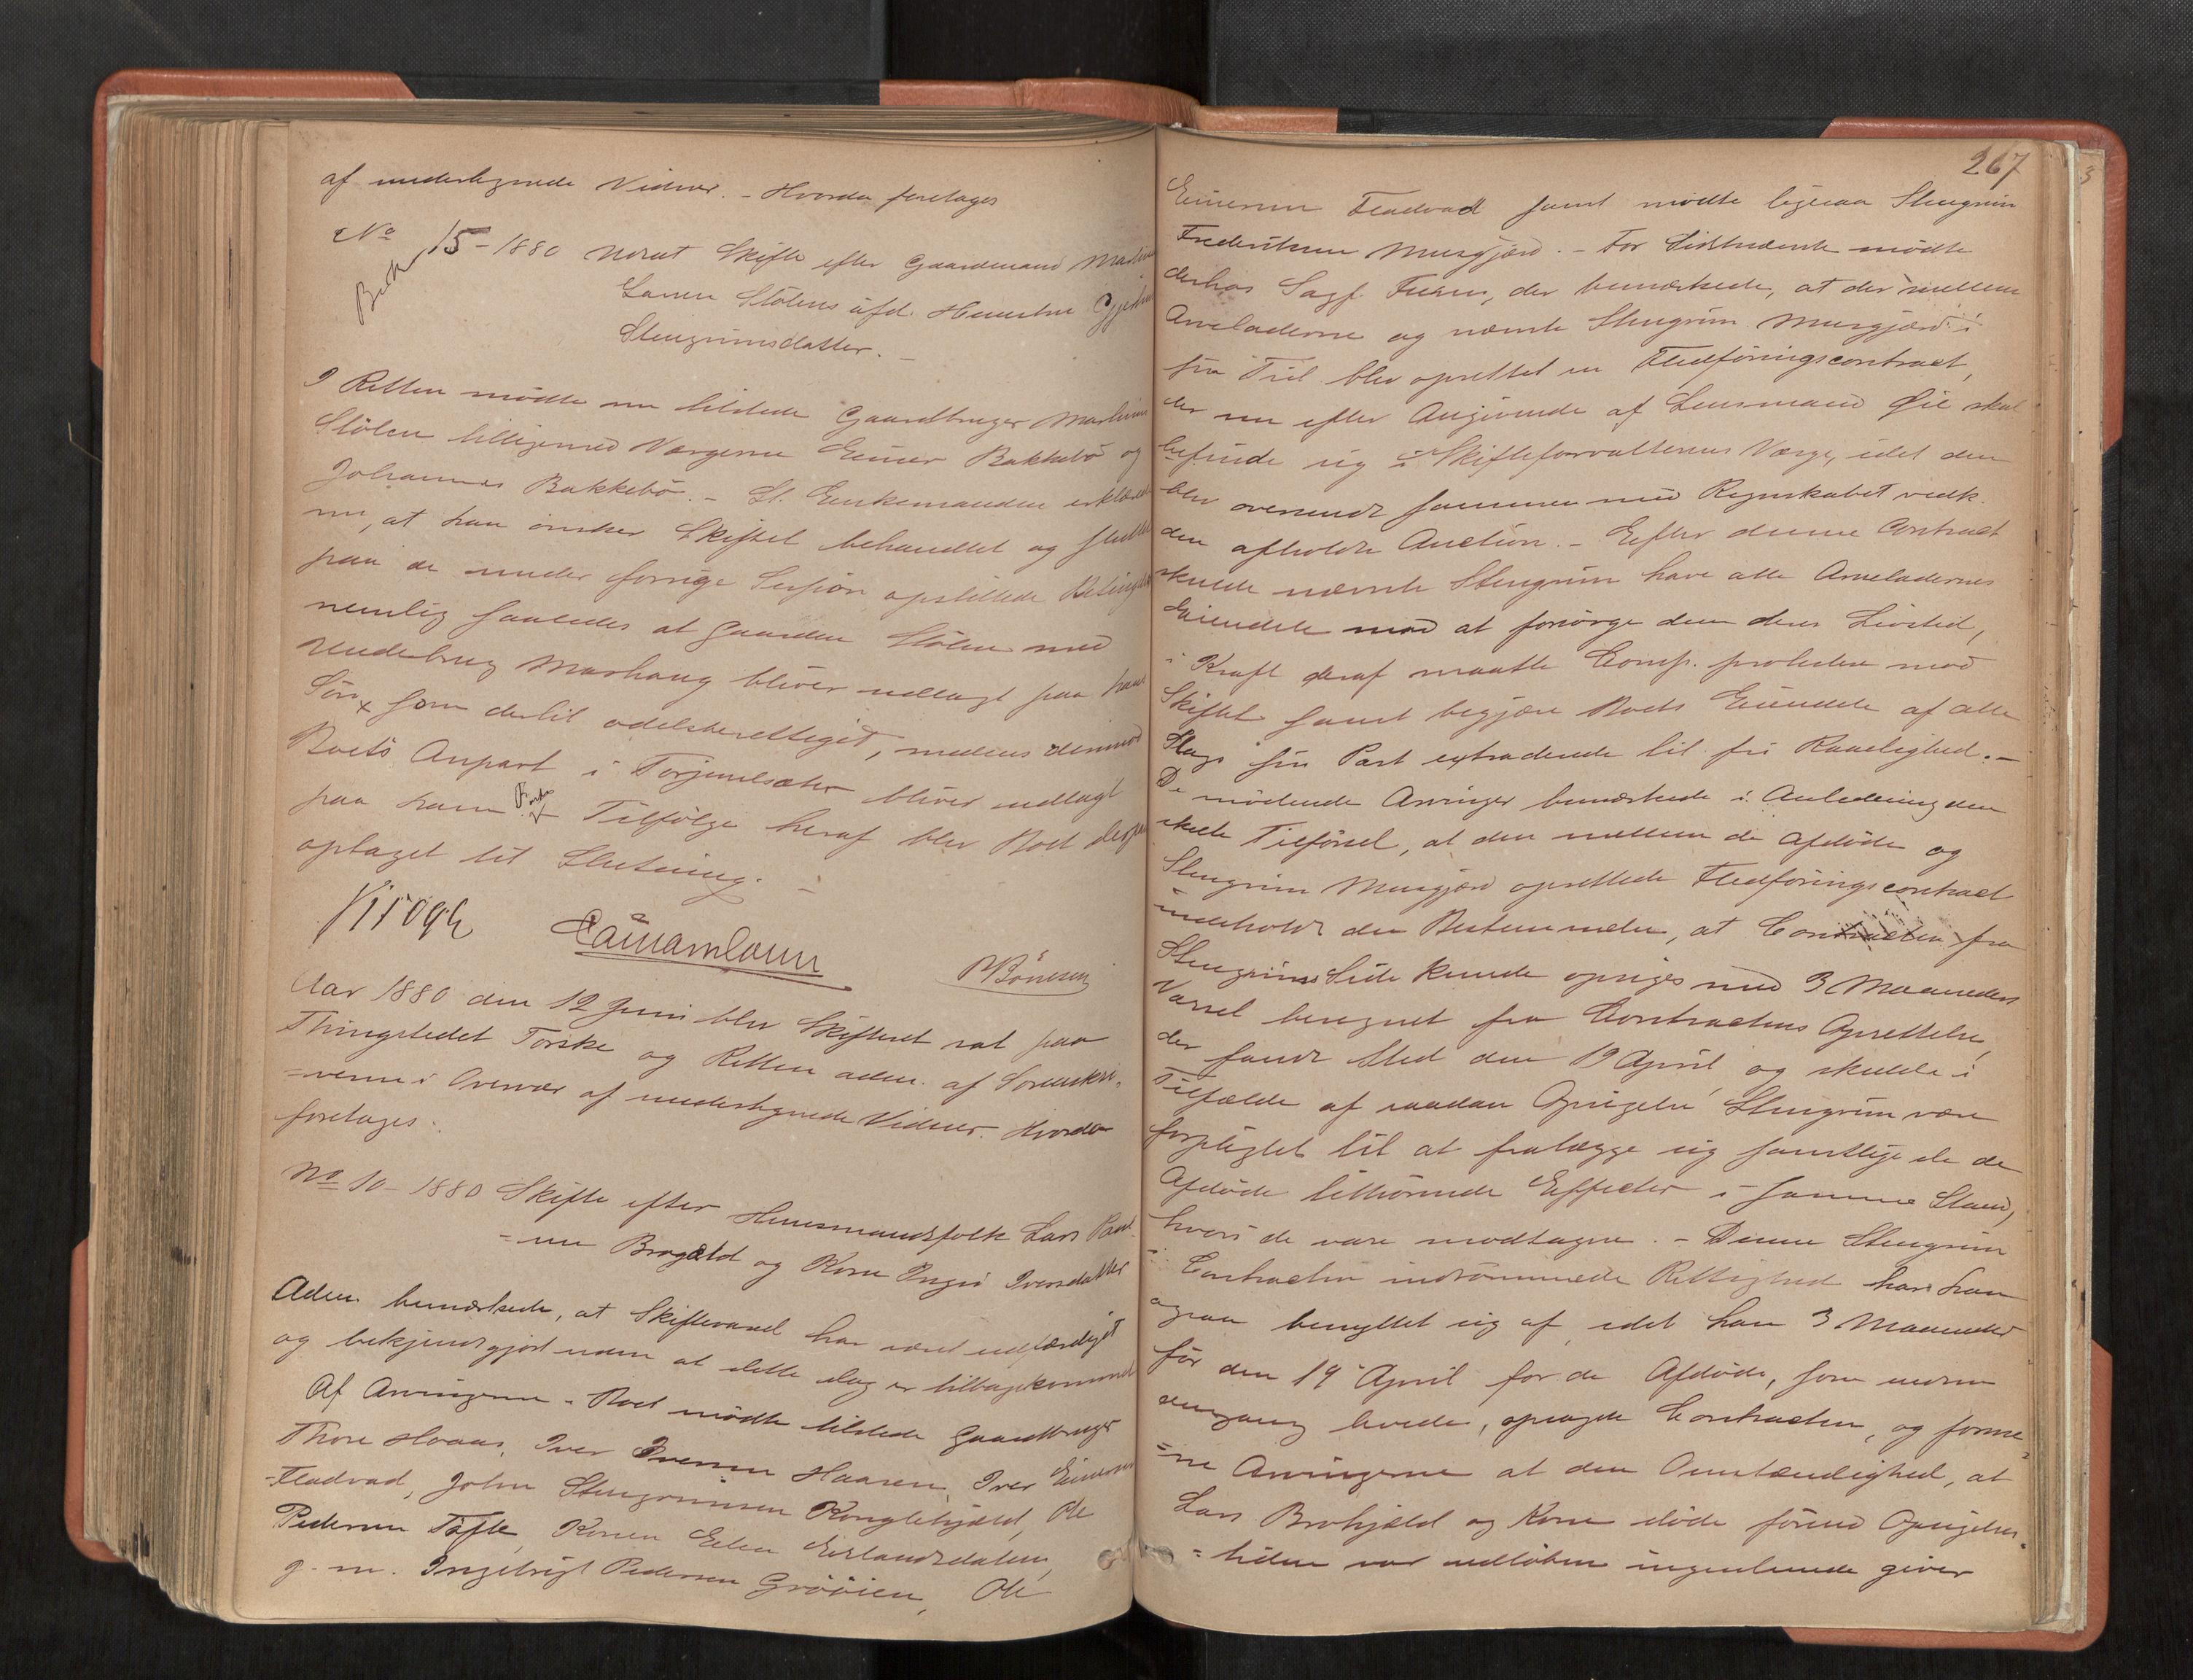 af undertegnede Vidner. – Hvorda foretages
No 15 – 1880 vorut Skifte efter Gaardmand
Larsen Stölens afd. Hunstru
Stengrimsdatter. –
I Retten mödte nu tilstede Gaardbruger Martinus
Stölen tilligemed Værgerne Einer Bakkebö og
Johannes Bakkebö. – Enkemanden erklærede
nu, at han önsker Skiftet behandlet og sluttet
paa de under forrige Session opstillede
nemlig saaledes at Gaarden Stölen med
Underbrug Marhaug bliver udlagt paa hans
Sön som dertil odelsberettiget, medens derimod
Boets Anpart i Torjeruelsæter bliver udlagt
paa ham Tilfölge heraf blev Boet
optaget til Slutning. –
Krogh
B Bönesen
Aar 1880 den 12 Juni blev Skifteret sat paa
Thingstedet Torske og Retten adm. af Sorenskri-
=veren i Overvær af undertegnede Vidner. Hvorda
foretages:
No 10 – 1880 Skifte efter Huusmandsfolk Lars Paul
=sen og Kone Ingri Iversdatter
Adm. bemærkede, at Skiftevarsel har været udfærdiget
og bekjendtgjort uden at dette dog er tilbagekommet
Af Arvingerne i Boet mödte tilstede Gaardbruger
Thore Hoaas, Iver Iversen Haasen, Iver Einersen
Fladvad, John Stengrimsen Konglehjæld, Ole
Pedersen Töfte, Konen Eelen Erlandsdatter,
g. m. Ingebrigt Pedersen Grööien, Ole
267
Einersen Fladvad samt mödte ligesaa Stengrim
Frederiksen Musgjærd. – For Sidstnævnte mödte
derhos Sagf. der bemærkede, at der mellem
Arveladerne og nævnte Stengrim Musgjærd i
sin Tid blev oprettet en Fledföringscontract,
der nu efter Angivende af Lensmand Öie skal
befinde sig i Skifteforvalterens Værge, idet den
blev oversendt sammen med Regnskabet vedk.
den afholdte Auction. – Efter denne Contract
skulde nævnte Stengrim have alle Arveladernes
Eiendele mod at forsörge dem deres Livstid,
i Kraft deraf maatte Comp. protestere mod
Skiftet samt begjære Boets Eiendele af alle
Slags sin Part extraderede til fri Raadighed. –
De mödende Arvinger bemærkede i Anledning den
skete Tilförsel, at den mellem de Afdöde og
Stengrim Musgjærd oprettede Fledföringscontract
indeholdt den Bestemmelse, at Contracten fra
Stengrims Side kunde opsiges med 3 Maaneders
Varsel beregnet fra Contractens Oprettelse,
der fandt Sted den 19 April, og skulde i
Tilfælde af saadan Opsigelse Stengrim være
forpligtet til at fralægge sig samtlige de de
Afdöde tilhörende Effecter i samme Stand,
hvori de vare modtagne. – Denne Stengrim
i Contracten indrömmede Rettighed har han
ogsaa benyttet sig af, idet han 3 Maaneder
för den 19 April for de Afdöde, som endnu
dengang levede, opsagde Contracten, og forme-
=ne Arvingerne at den Omstændighed, at
Lars Brohjæld og Kone döde förend Opsigelses-
=tiden var udlöben ingenlunde giver